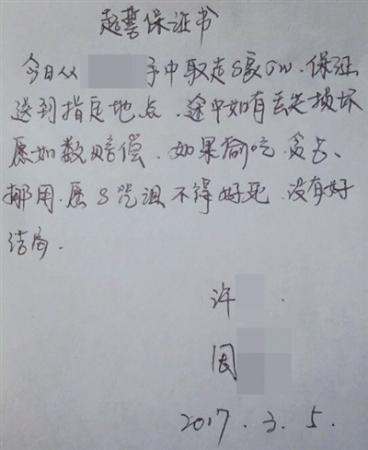 起誓保证书
今日从 手中取走S家 保证
送到指定地点.途中如有丢失损坏
愿如数赔偿.如果偷吃.贪占、
挪用.愿S咒诅不得好死 没有好
结局.
许 .
因
2017.3.5.